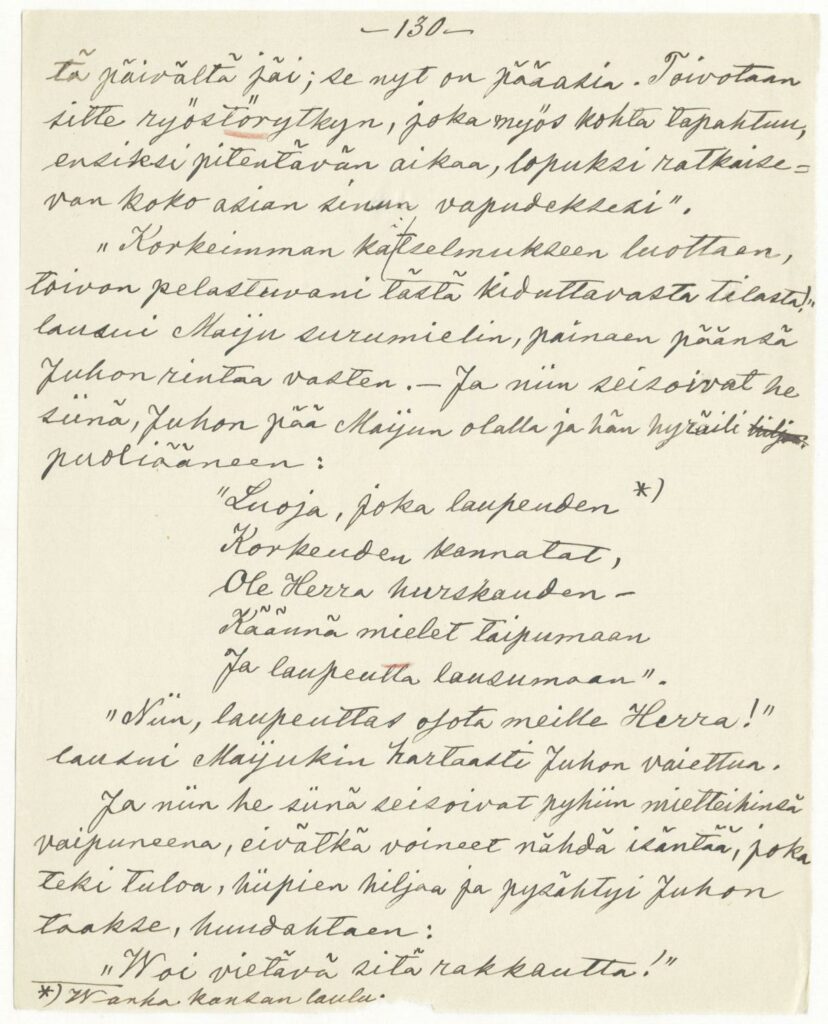 —130—
tä päivältä jäi; se nyt on pääasia. Toivotaan
sitte ryöstörytkyn, joka myös kohta tapahtuu,
ensiksi pitentävän aikaa, lopuksi ratkaise=
van koko asian sinun vapudeksesi".
„Korkeimman katselmukseen luottaen,
toivon pelastuvani tästä kiduttavasta tilasta!"
lausui Maiju surumielin, painaen päänsä
Juhon rintaa vasten. — Ja niin seisoivat he
siinä, Juhon pää Maijun olalla ja hän hyräili hiljaa
puoliääneen:
"Luoja, joka laupeuden *)
Korkeuden kannatat,
Ole Herra hurskauden —
Käännä mielet taipumaan
Ja laupeutta lausumaan".
"Niin, laupeuttas osota meille Herra!"
lausui Maijukin hartaasti Juhon vaiettua.
Ja niin he siinä seisoivat pyhiin mietteihinsä
vaipuneena, eivätkä voineet nähdä isäntää, joka
teki tuloa, hiipien hiljaa ja pysähtyi Juhon
taakse, huudahtaen:
„Woi vietävä sitä rakkautta!"
*) Wanha kansan laulu.